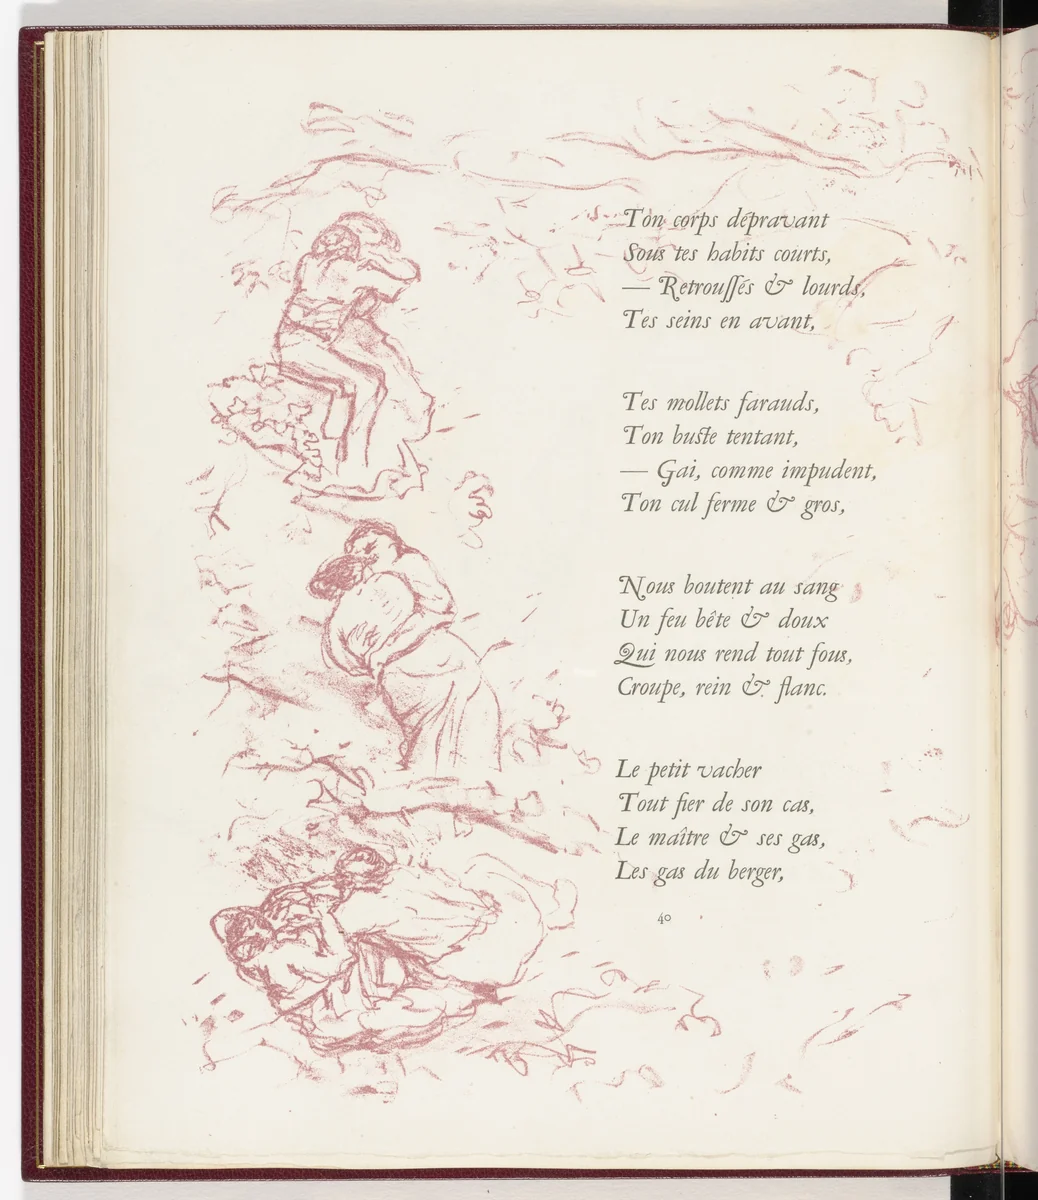 Ton corps dépravant
Sous tes habits courts,
— Retrouſſés & lourds,
Tes seins en avant,
Tes mollets farauds,
Ton buste tentant,
— Gai, comme impudent,
Ton cul ferme & gros,
Nous boutent au sang
Un feu bête & doux
Qui nous rend tout fous,
Croupe, rein & flanc.
Le petit vacher
Tout fier de son cas,
Le maître & ses gas,
Les gas du berger,
40